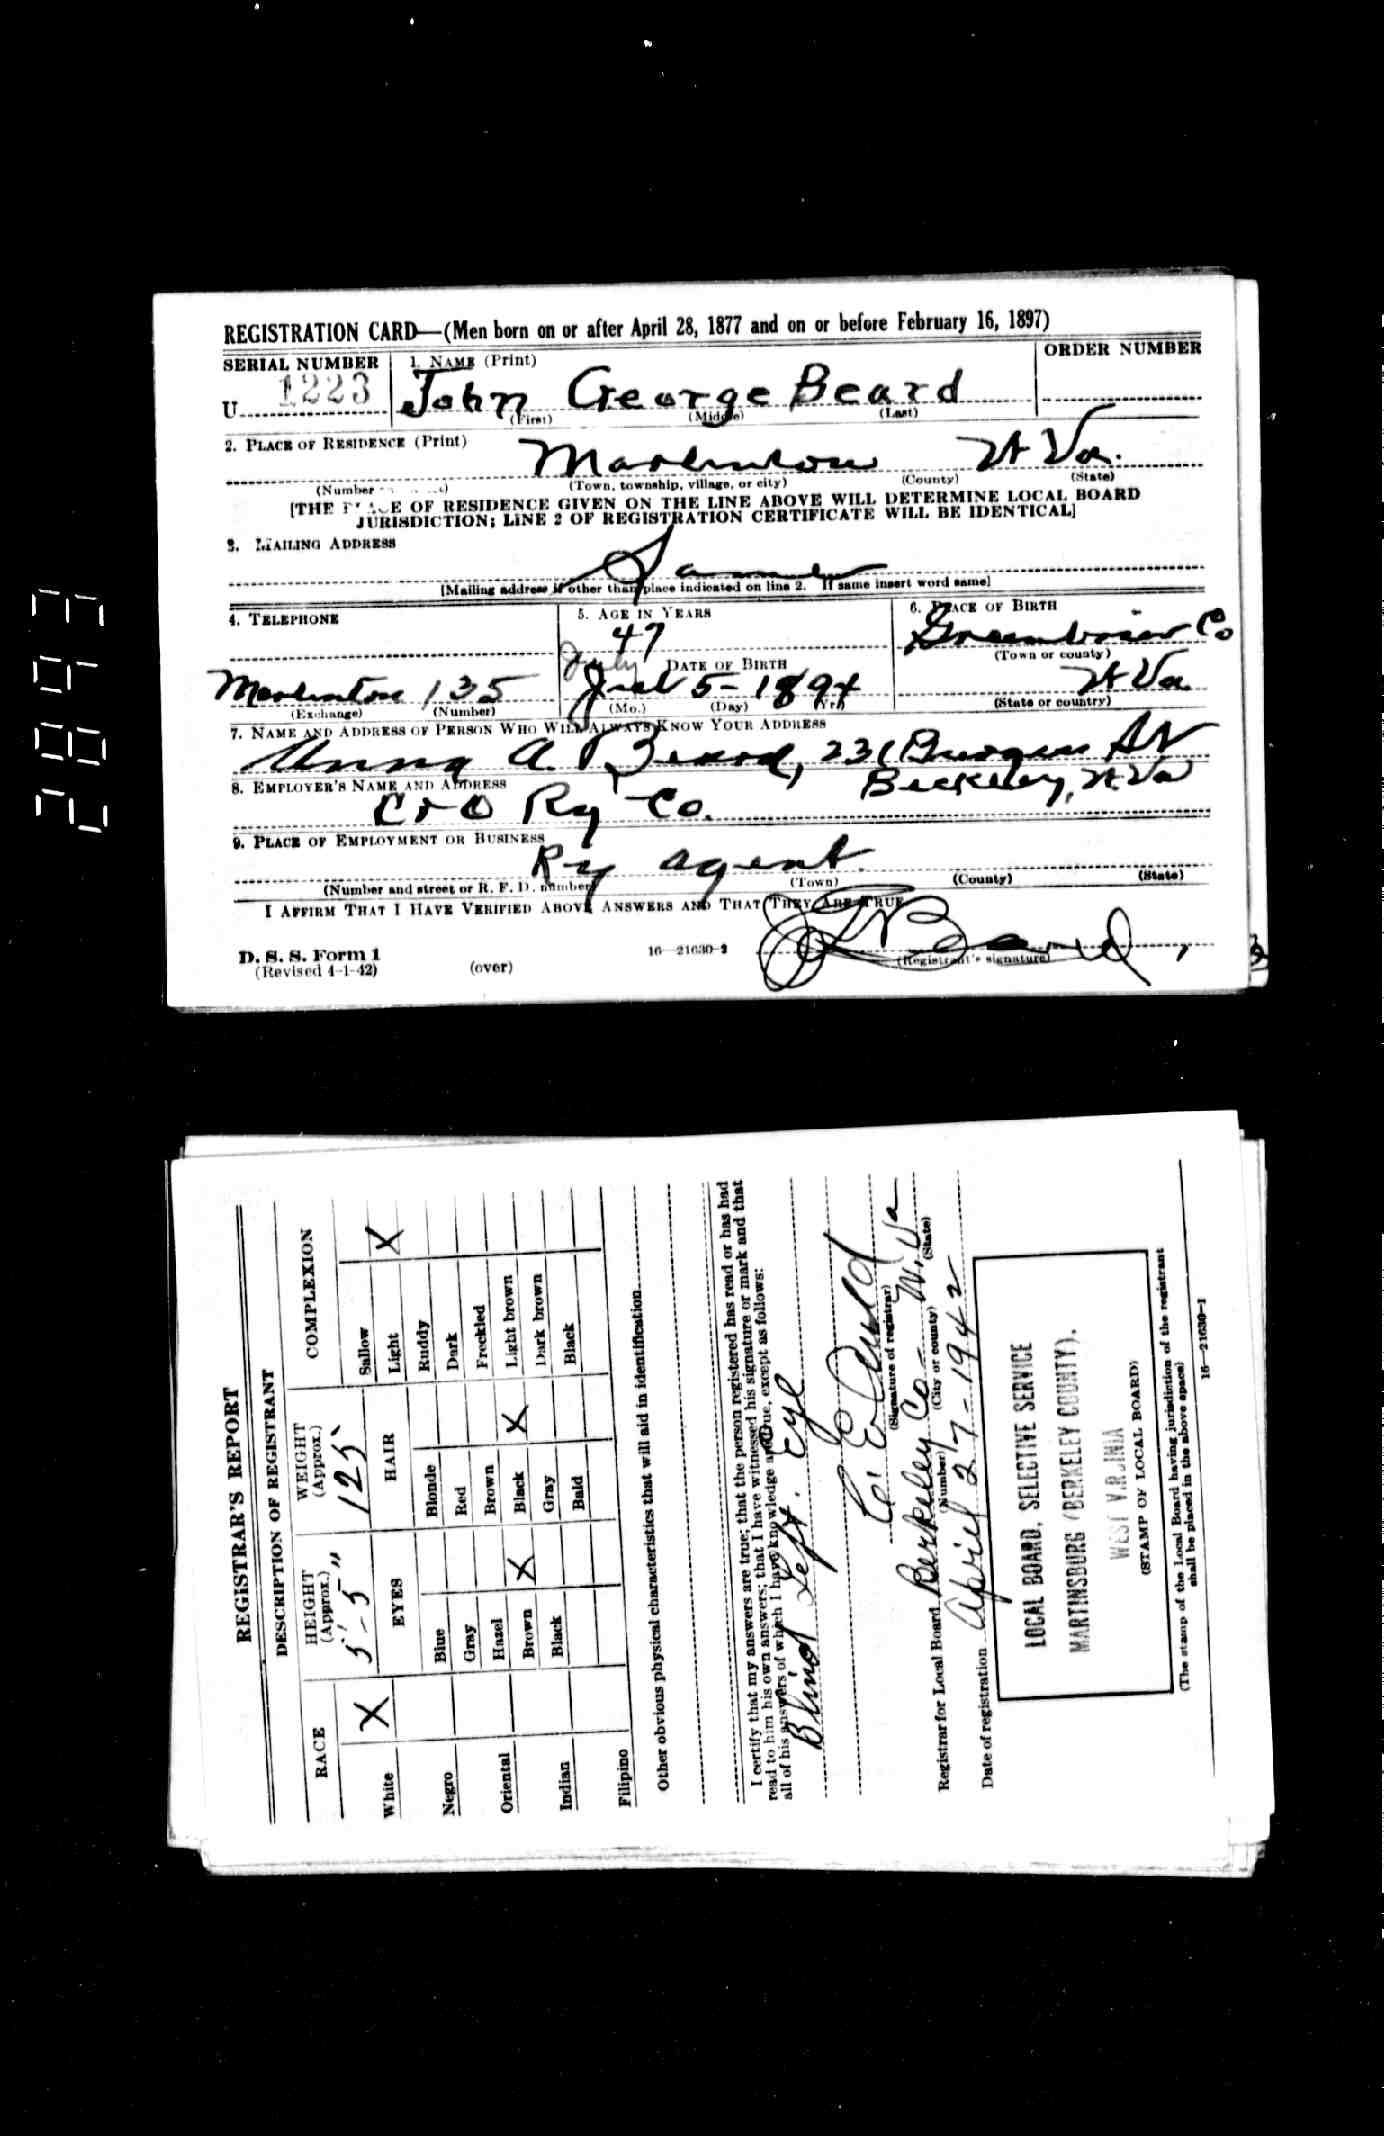 REGISTRATION CARD—(Men born on or after April 28, 1877 and on or before February 16, 1897)
SERIAL NUMBER
1. NAME (Print)
ORDER NUMBER
U 1223
John George Beard
(First) (Middle) (Last)
2. PLACE OF RESIDENCE (Print)
Marlinton W Va.
(Number (Town, township, village, or city) (County) (State)
[THE PLACE OF RESIDENCE GIVEN ON THE LINE ABOVE WILL DETERMINE LOCAL BOARD
JURISDICTION; LINE 2 OF REGISTRATION CERTIFICATE WILL BE IDENTICAL]
3. MAILING ADDRESS
Same
[Mailing address if other than place indicated on line 2. If same insert word same]
4. TELEPHONE
5. AGE IN YEARS
6. PLACE OF BIRTH
47
Greenbrier Co
(Town or county)
July
DATE OF BIRTH
Marlinton 135
5-1894
W Va
(Exchange) (Number)
(Mo.) (Day) (Yr.)
(State or country)
7. NAME AND ADDRESS OF PERSON WHO WILL ALWAYS KNOW YOUR ADDRESS
Anna A. Beard, 231
8. EMPLOYER'S NAME AND ADDRESS
Beckley, W Va
C & O Ry Co.
9. PLACE OF EMPLOYMENT OR BUSINESS
Ry agent
(Number and street or R. F. D. number) (Town) (County) (State)
I AFFIRM THAT I HAVE VERIFIED ABOVE ANSWERS AND THAT THEY ARE TRUE
D. S. S. Form 1
(Revised 4-1-42)
(over)
16—21630-2
J G Beard
(Registrant's signature)
2893
REGISTRAR'S REPORT
DESCRIPTION OF REGISTRANT
RACE
HEIGHT
(Approx.)
WEIGHT
(Approx.)
COMPLEXION
5'-5"
125
White X
EYES
HAIR
Sallow
Light X
Negro
Blue
Blonde
Ruddy
Gray
Red
Dark
Oriental
Hazel
Brown
Freckled
Brown X
Black X
Light brown
Indian
Black
Gray
Dark brown
Bald
Black
Filipino
Other obvious physical characteristics that will aid in identification
I certify that my answers are true; that the person registered has read or has had
read to him his own answers; that I have witnessed his signature or mark and that
all of his answers of which I have knowledge are true, except as follows:
Blind Left. Eye
(Signature of registrar)
Registrar for Local Board Berkeley Co- W. Va
(Number) (City or county) (State)
Date of registration April 27-1942
LOCAL BOARD, SELECTIVE SERVICE
MARTINSBURG (BERKELEY COUNTY).
WEST VIRGINIA
(STAMP OF LOCAL BOARD)
(The stamp of the Local Board having jurisdiction of the registrant
shall be placed in the above space)
16—21630-1